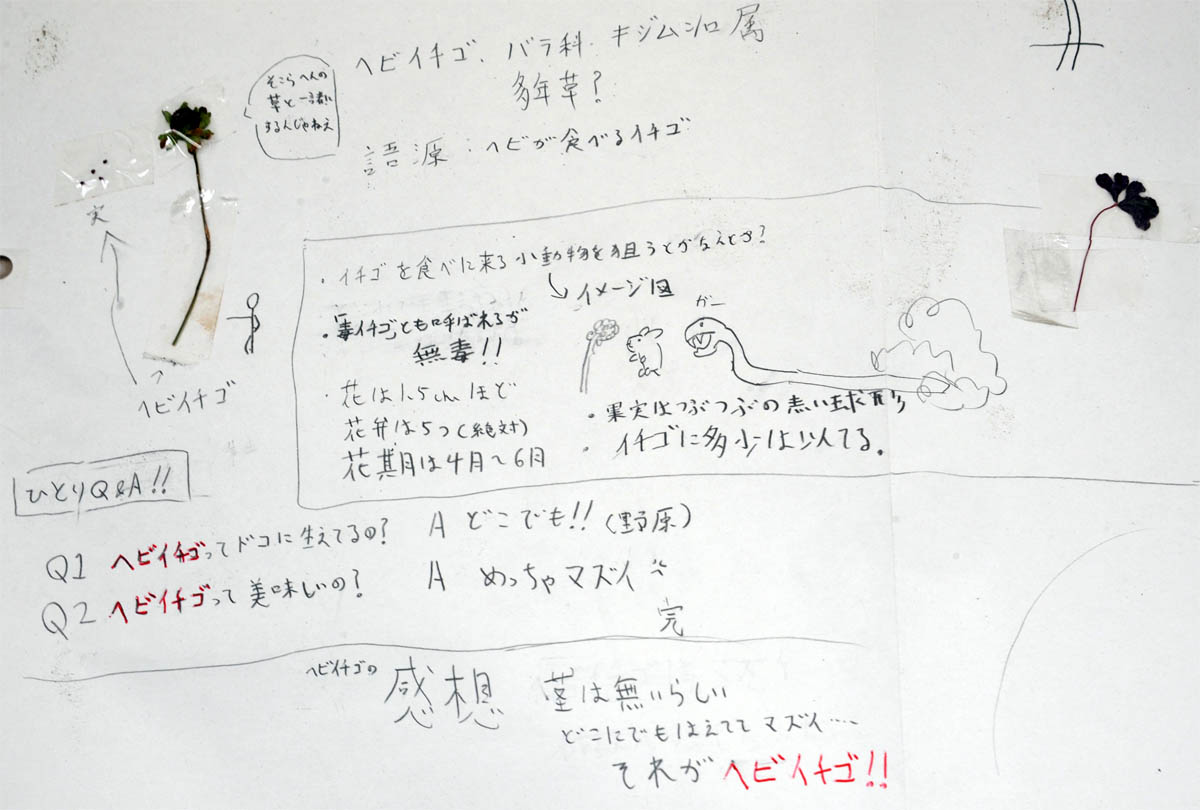 ヘビイチゴ、バラ科、キジムシロ属
多年草?
そこらへんの
草と一緒に
するんじゃねえ
語源:ヘビが食べるイチゴ
実
ヘビイチゴ
・イチゴを食べに来る小動物を狙うとかなんとか?
イメージ図
ガー
・「毒イチゴ」とも呼ばれるが
無毒!!
・花は1.5cmほど
花弁は5つ(絶対)
花期は4月~6月
・果実はつぶつぶの赤い球形
・イチゴに多少は似てる。
ひとりQ&A!!
Q1 ヘビイチゴってドコに生えてるの? A どこでも!!(野原)
Q2 ヘビイチゴって美味しいの? A めっちゃマズイ
完
ヘビイチゴの
感想
茎は無いらしい
どこにでもはえててマズイ……
それがヘビイチゴ!!